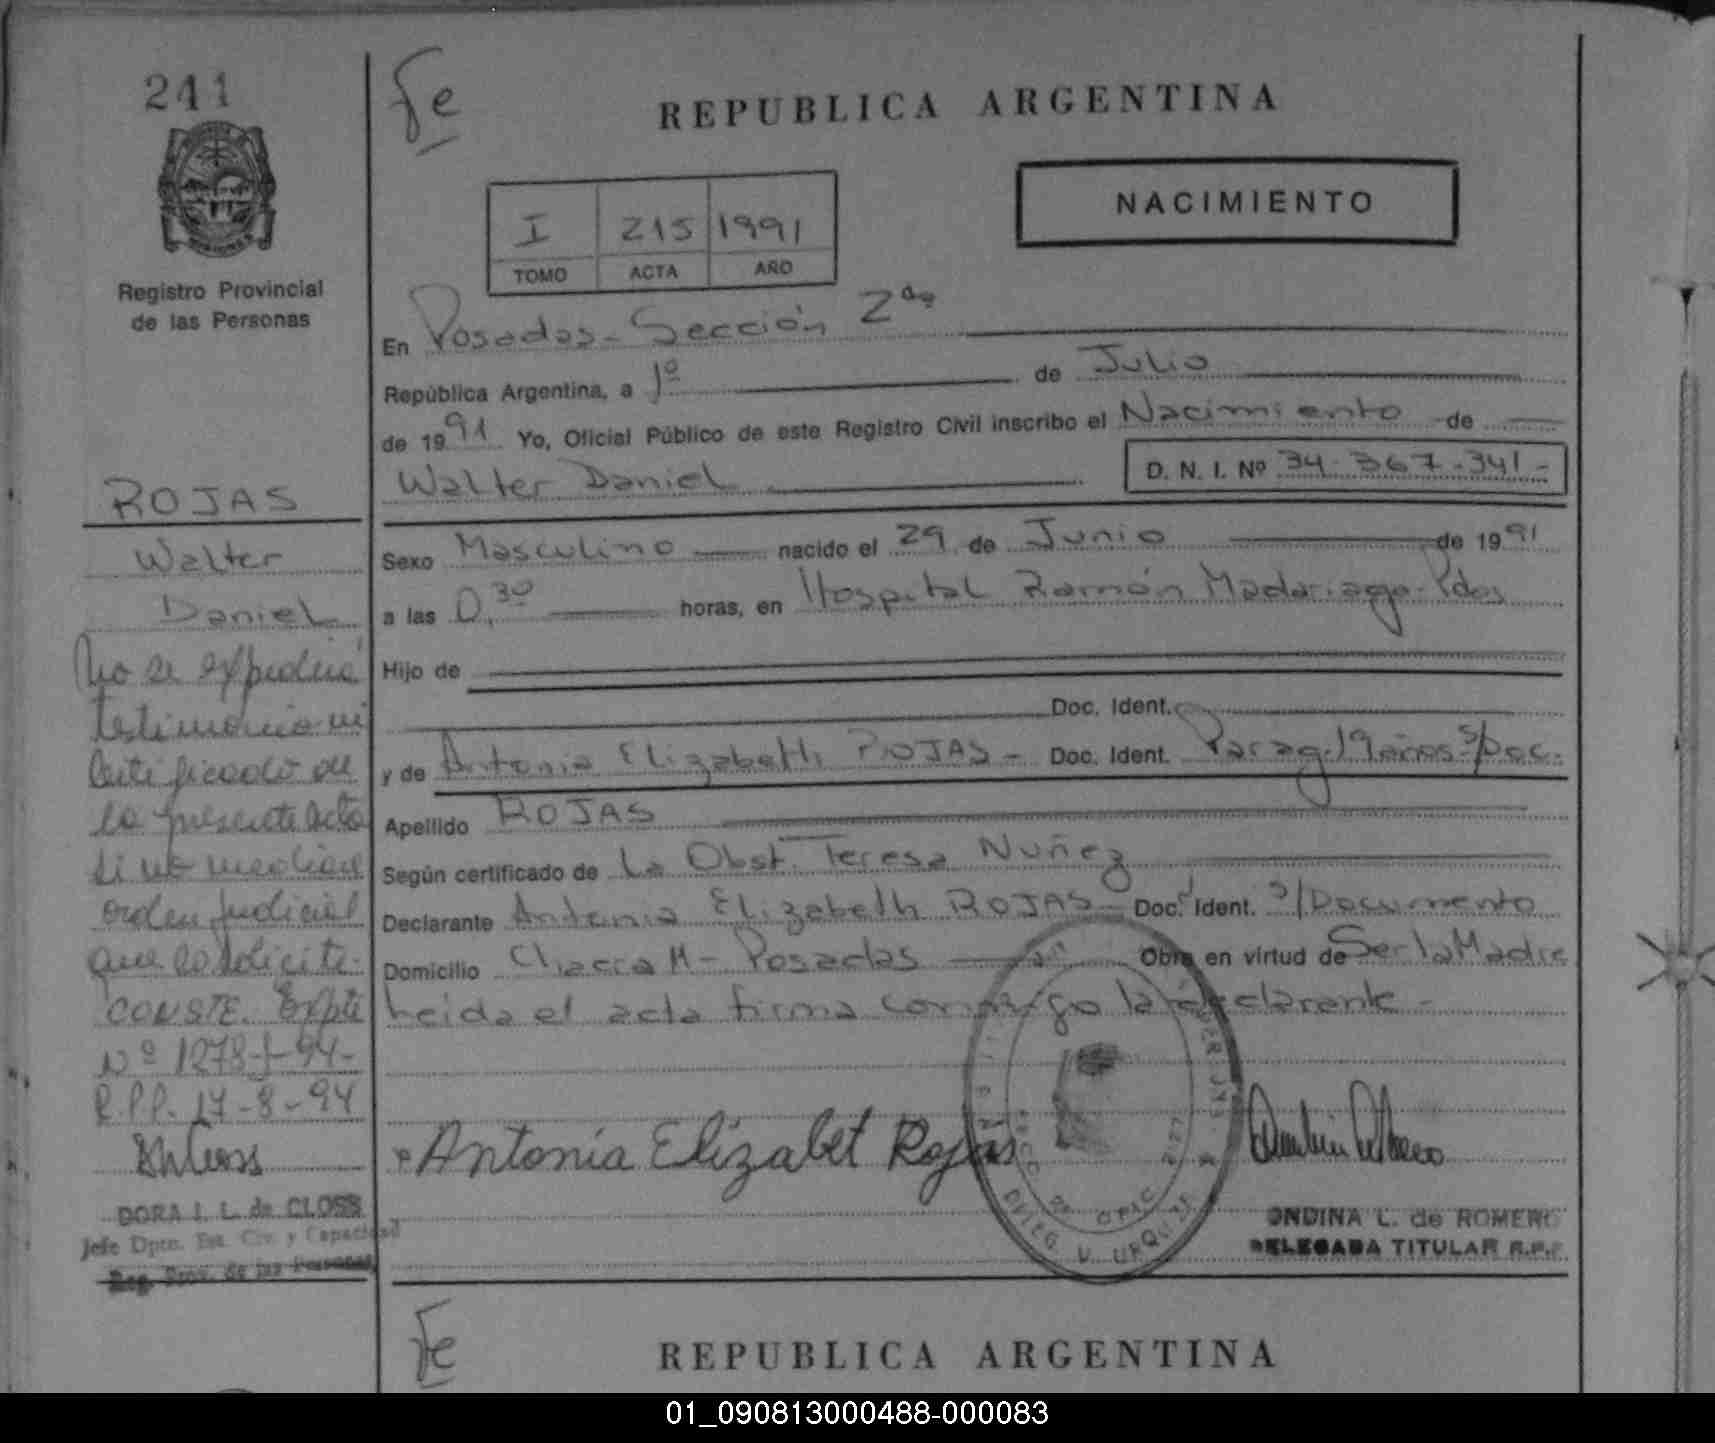 241
Registro Provincial
de las Personas
ROJAS
Walter
Daniel
No se expedirá
testimonio ni
certificado de
la presente acta
si no mediare
orden judicial
que lo solicite.
CONSTE. Expte
Nº 1278-94-
R.P.P. 17-8-94
DORA I. L. de CLOSS
Jefe Dpto. Est. Civ. y Capacidad
Reg. Prov. de las Personas
Fe
REPUBLICA ARGENTINA
NACIMIENTO
I 215 1991
TOMO ACTA AÑO
En Posadas - Sección 2da
República Argentina, a 1º de Julio
de 1991 Yo, Oficial Público de este Registro Civil inscribo el Nacimiento de
Walter Daniel D. N. I. Nº 34-367-341-
Sexo Masculino nacido el 29 de Junio de 1991
a las 0,30 horas, en Hospital Ramón Madariaga-Pdas
Hijo de
Doc. Ident.
y de Antonia Elizabeth ROJAS - Doc. Ident. Parag. 19 años s/Doc.
Apellido ROJAS
Según certificado de La Obst. Teresa Nuñez
Declarante Antonia Elizabeth ROJAS - Doc. Ident. s/Documento
Domicilio Chacra M - Posadas Obra en virtud de Ser la Madre
Leida el acta firma conmigo la declarante -
Antonia Elizabet Rojas
ONDINA L. de ROMERO
DELEGADA TITULAR R.P.P.
Fe
REPUBLICA ARGENTINA
01_090813000488-000083